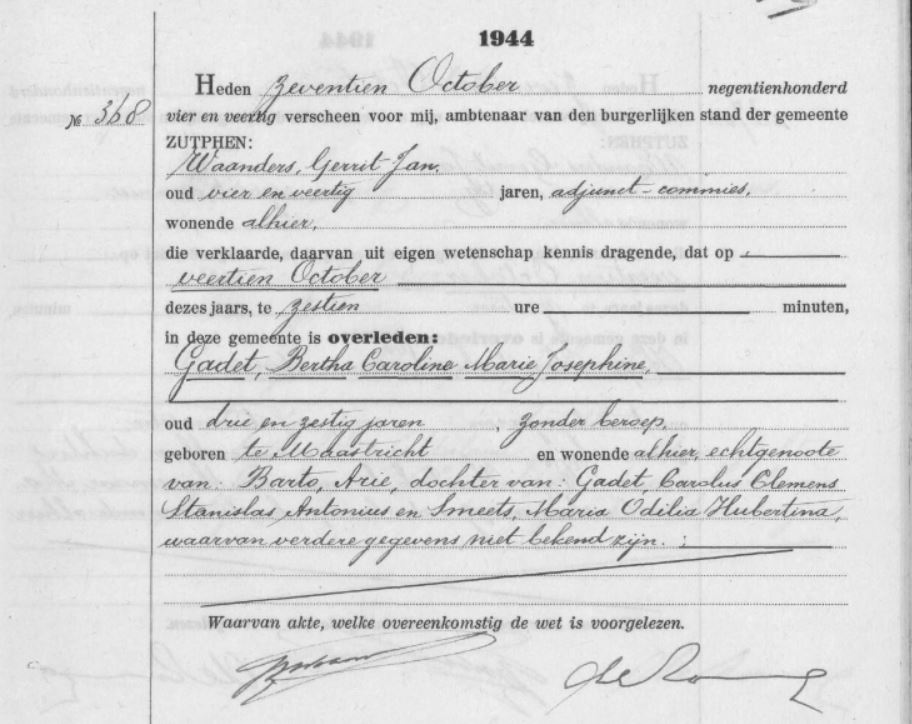 1944
Heden zeventien October negentienhonderd
№ 368 vier en veertig verscheen voor mij, ambtenaar van den burgerlijken stand der gemeente
ZUTPHEN:
Waanders, Gerrit Jan.
oud vier en veertig jaren, adjunct-commies,
wonende alhier,
die verklaarde, daarvan uit eigen wetenschap kennis dragende, dat op
veertien October
dezes jaars, te zestien ure minuten,
in deze gemeente is overleden:
Gadet, Bertha Caroline Marie Josephine,
oud drie en zestig jaren, zonder beroep,
geboren te Maastricht en wonende alhier, echtgenoote
van: Barto, Arie, dochter van: Gadet, Carolus Clemens
Stanislas Antonius en Smeets, Maria Odilia Hubertina,
waarvan verdere gegevens niet bekend zijn.
Waarvan akte, welke overeenkomstig de wet is voorgelezen.